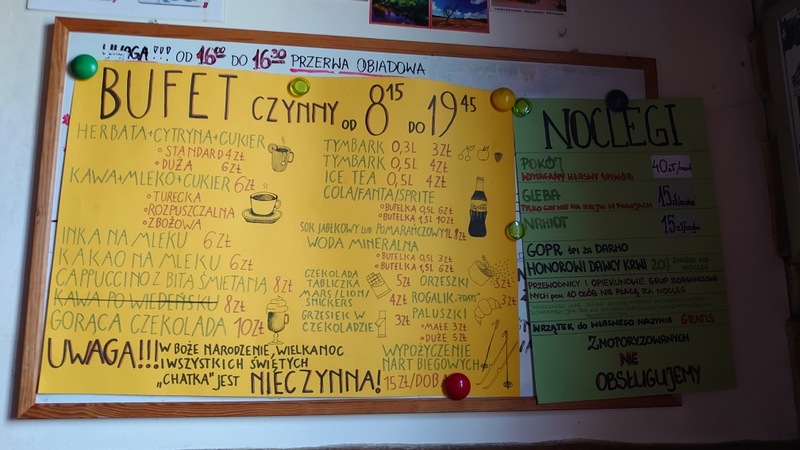 UWAGA!!! OD 16⁰⁰ DO 16³⁰ PRZERWA OBIADOWA
BUFET CZYNNY OD 8¹⁵ DO 19⁴⁵
HERBATA+CYTRYNA+CUKIER
STANDARD 4ZŁ
DUŻA 6ZŁ
KAWA+MLEKO+CUKIER 6ZŁ
TURECKA
ROZPUSZCZALNA
ZBOŻOWA
INKA NA MLEKU 6ZŁ
KAKAO NA MLEKU 6ZŁ
CAPPUCCINO Z BITĄ ŚMIETANĄ 8ZŁ
KAWA PO WIEDEŃSKU 8ZŁ
GORĄCA CZEKOLADA 10ZŁ
TYMBARK 0,3L 3ZŁ
TYMBARK 0,5L 4ZŁ
ICE TEA 0,5L 4ZŁ
COLA/FANTA/SPRITE
BUTELKA 0,5L 6ZŁ
BUTELKA 1,5L 10ZŁ
SOK JABŁKOWY LUB POMARAŃCZOWY 1L 8ZŁ
WODA MINERALNA
BUTELKA 0,5L 3ZŁ
BUTELKA 1,5L 6ZŁ
CZEKOLADA
TABLICZKA 5ZŁ
MARS/LION/
SNICKERS 4ZŁ
GRZESIEK W
CZEKOLADZIE 3ZŁ
ORZESZKI 5ZŁ
ROGALIK "7DAYS" 3ZŁ
PALUSZKI
MAŁE 3ZŁ
DUŻE 5ZŁ
WYPOŻYCZENIE
NART BIEGOWYCH
15ZŁ/DOB
UWAGA!!! W BOŻE NARODZENIE, WIELKANOC
I WSZYSTKICH ŚWIĘTYCH
„CHATKA" JEST NIECZYNNA!
NOCLEGI
POKÓJ 40ZŁ/
WYMAGANY WŁASNY ŚPIWÓR!
GLEBA 15
TYLKO GDY NIE MA MIEJSC W POKOJACH
NAMIOT 15
GOPR ŚPI ZA DARMO
HONOROWI DAWCY KRWI 20% ZNIŻKI NA NOCLEG
PRZEWODNICY I OPIEKUNOWIE GRUP ZORGANIZOWA-
NYCH pow. 10 OSÓB NIE PŁACĄ ZA NOCLEG
WRZĄTEK DO WŁASNEGO NACZYNIA GRATIS
ZMOTORYZOWANYCH
NIE
OBSŁUGUJEMY